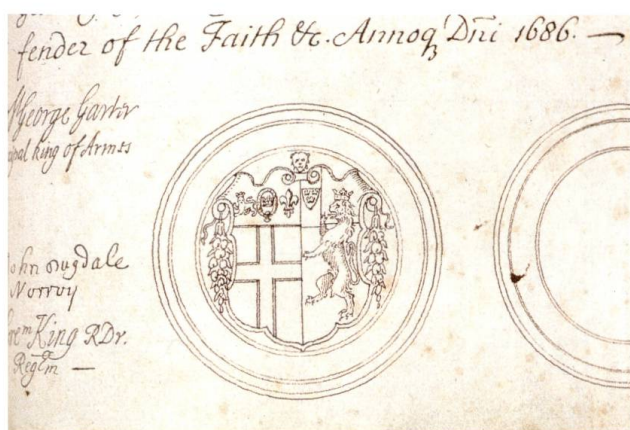 fender of the Faith &c. Annoq, Dñi 1686. —
George Garter
pal King of Armes
ohn Dugdale
Norroy
King RDr.
Regm —